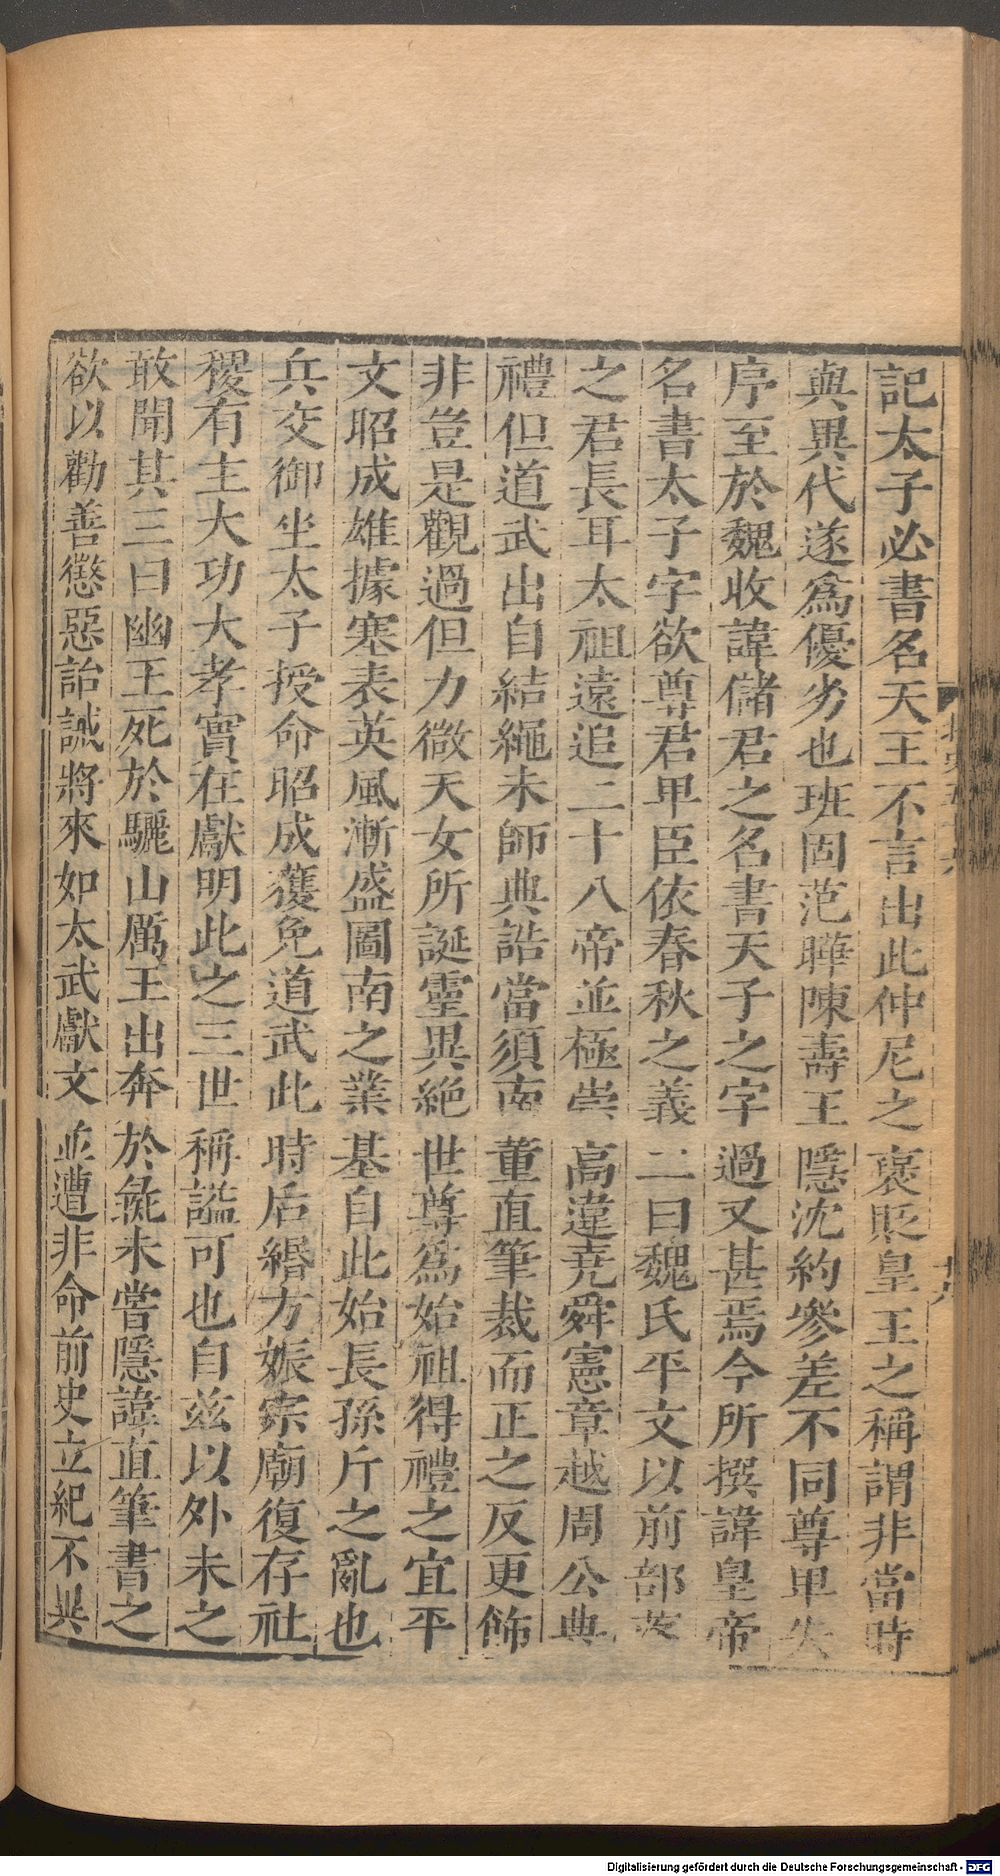 記太子必書名天王不言出此仲尼之褒貶皇王之稱謂非當時
與異代遂爲優劣也班固范曄陳壽王隱沈約參差不同尊卑失
序至於魏收諱儲君之名書天子之字過又甚焉今所撰諱皇帝
名書太子字欲尊君卑臣依春秋之義二曰魏氏平文以前部落
之君長耳太祖遠追二十八帝並極崇高違堯舜憲章越周公典
禮但道武出自結繩未師典誥當須南董直筆裁而正之反更飾
非豈是觀過但力微天女所誕靈異絶世尊爲始祖得禮之宜平
文昭成雄據塞表英風漸盛圖南之業基自此始長孫斤之亂也
兵交御坐太子授命昭成獲免道武此時后緡方娠宗廟復存社
稷有主大功大孝實在獻明此之三世稱謚可也自兹以外未之
敢聞其三曰幽王死於驪山厲王出奔於彘未嘗隱諱直筆書之
欲以勸善懲惡詒誡將來如太武獻文並遭非命前史立紀不異
Digitalisierung gefördert durch die Deutsche Forschungsgemeinschaft - DFG